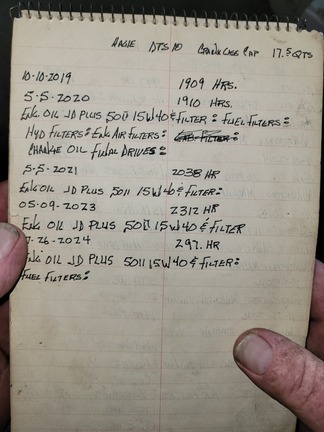 HAGIE DTS 10 CRANKCASE CAP 17.5 QTS
10-10-2019 1909 HRS.
5-5-2020 1910 HRS.
ENG OIL JD PLUS 50II 15W40 & FILTER: FUEL FILTERS:
HYD FILTERS: ENG AIR FILTERS: CAB FILTER:
CHANGE OIL FINAL DRIVES:
5-5-2021 2038 HR
ENG OIL JD PLUS 50II 15W40 & FILTER:
05-09-2023 2312 HR
ENG OIL JD PLUS 50II 15W40 & FILTER
7-26-2024 297. HR
ENG OIL JD PLUS 50II 15W40 & FILTER:
FUEL FILTERS: